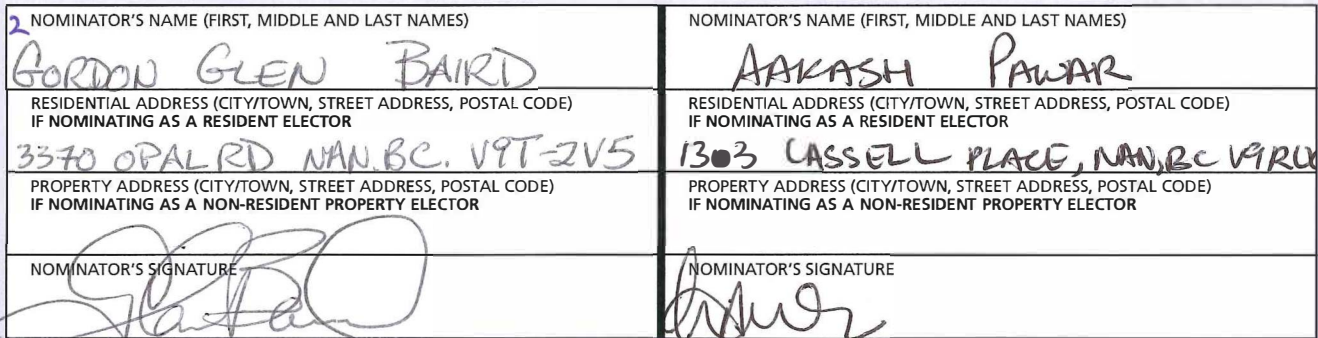 2 NOMINATOR'S NAME (FIRST, MIDDLE AND LAST NAMES)
GORDON GLEN BAIRD
RESIDENTIAL ADDRESS (CITY/TOWN, STREET ADDRESS, POSTAL CODE)
IF NOMINATING AS A RESIDENT ELECTOR
3370 OPAL RD NAN. BC. V9T-2V5
PROPERTY ADDRESS (CITY/TOWN, STREET ADDRESS, POSTAL CODE)
IF NOMINATING AS A NON-RESIDENT PROPERTY ELECTOR
NOMINATOR'S SIGNATURE
NOMINATOR'S NAME (FIRST, MIDDLE AND LAST NAMES)
AAKASH PAWAR
RESIDENTIAL ADDRESS (CITY/TOWN, STREET ADDRESS, POSTAL CODE)
IF NOMINATING AS A RESIDENT ELECTOR
1303 CASSELL PLACE, NAN, BC
PROPERTY ADDRESS (CITY/TOWN, STREET ADDRESS, POSTAL CODE)
IF NOMINATING AS A NON-RESIDENT PROPERTY ELECTOR
NOMINATOR'S SIGNATURE